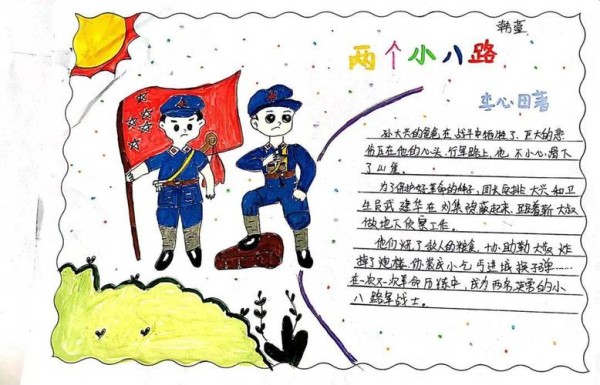 两个小八路
李心田著
孙大兴的爸爸在战斗中牺牲了，巨大的悲
伤压在他的心头，行军路上，他不小心滑下
了山崖。
为了保护好革命的种子，团长安排大兴和卫
生员武建华在刘集隐蔽起来，跟着新大叔
做地下侦察工作。
他们烧了敌人的粮食，协助勤大叔炸
掉了炮楼，伪装成小乞丐进城换子弹……
在一次又一次革命历练中，成为两名英勇的小
八路军战士。